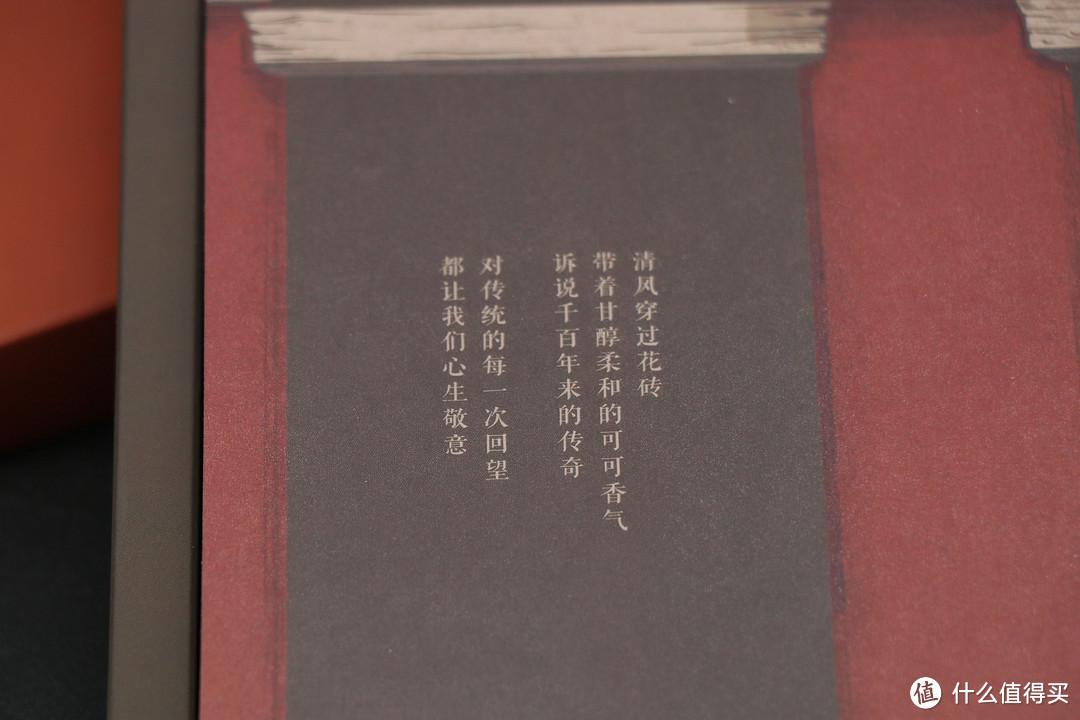 清风穿过花砖
带着甘醇柔和的可可香气
诉说千百年来的传奇
对传统的每一次回望
都让我们心生敬意
值 什么值得买